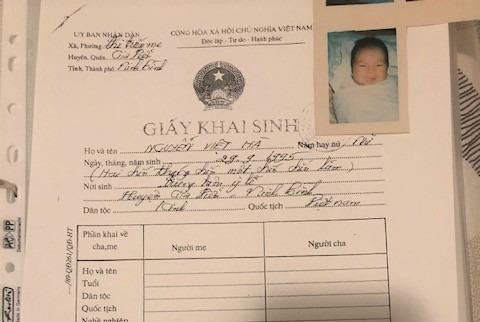 ỦY BAN NHÂN DÂN
Xã, Phường: Thị trấn me
Huyện, Quận: Gia
Tỉnh, Thành phố: Ninh Bình
CỘNG HÒA XÃ HỘI CHỦ NGHĨA VIỆT NAM
Độc lập - Tự do - Hạnh phúc
GIẤY KHAI SINH
Họ và tên NGUYỄN VIỆT HÀ Nam hay nữ: Nữ
Ngày, tháng, năm sinh 29.9.1995
(Hai chín tháng chín một chín chín lăm)
Nơi sinh Trung tâm y tế
Huyện Gia - Ninh Bình
Dân tộc Kinh Quốc tịch Việt nam
Phần khai về cha, mẹ
Người mẹ
Người cha
Họ và tên
Tuổi
Dân tộc
Quốc tịch
Nghề nghiệp
Made in Germany